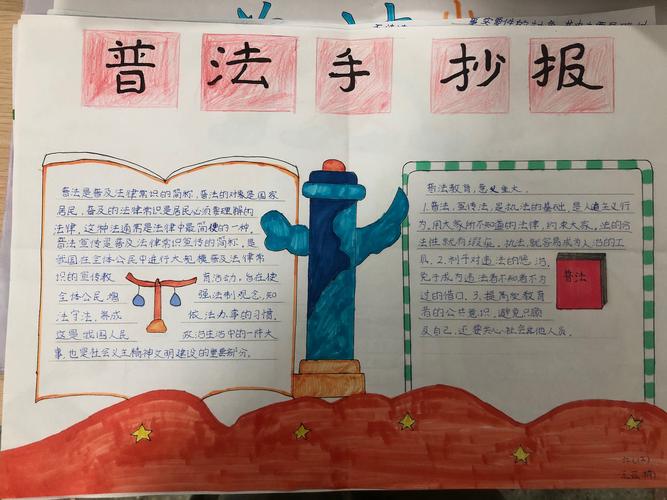 普法手抄报
普法是普及法律常识的简称,普法的对象是国家
居民,普及的法律常识是居民必须要理解的
法律,这种法通常是法律中最简梗的一种,
普法宣传是普及法律常识宣传的简称,是
我国在全体公民中进行大规模普及法律常
识的宣传教育活动,旨在使
全体公民,增强法制观念,知
法守法,养成依法办事的习惯,
这是我国人民政治生活中的一件大
事,也是社会主义精神文明建设的重要部分。
普法教育,意义重大
1.普法,宣传法,是执法的基础,是人道主义行
为,用大家所不知道的法律,约束大家。法的合
法性就有瑕疵。执法,就容易成为人治的工
具,2.利于对违法的惩治,
免于成为违法者不知者不为
过的借口,3.提高受教育
者的公共意识,避免只顾
及自己,还要关心社会其他人员。
普法